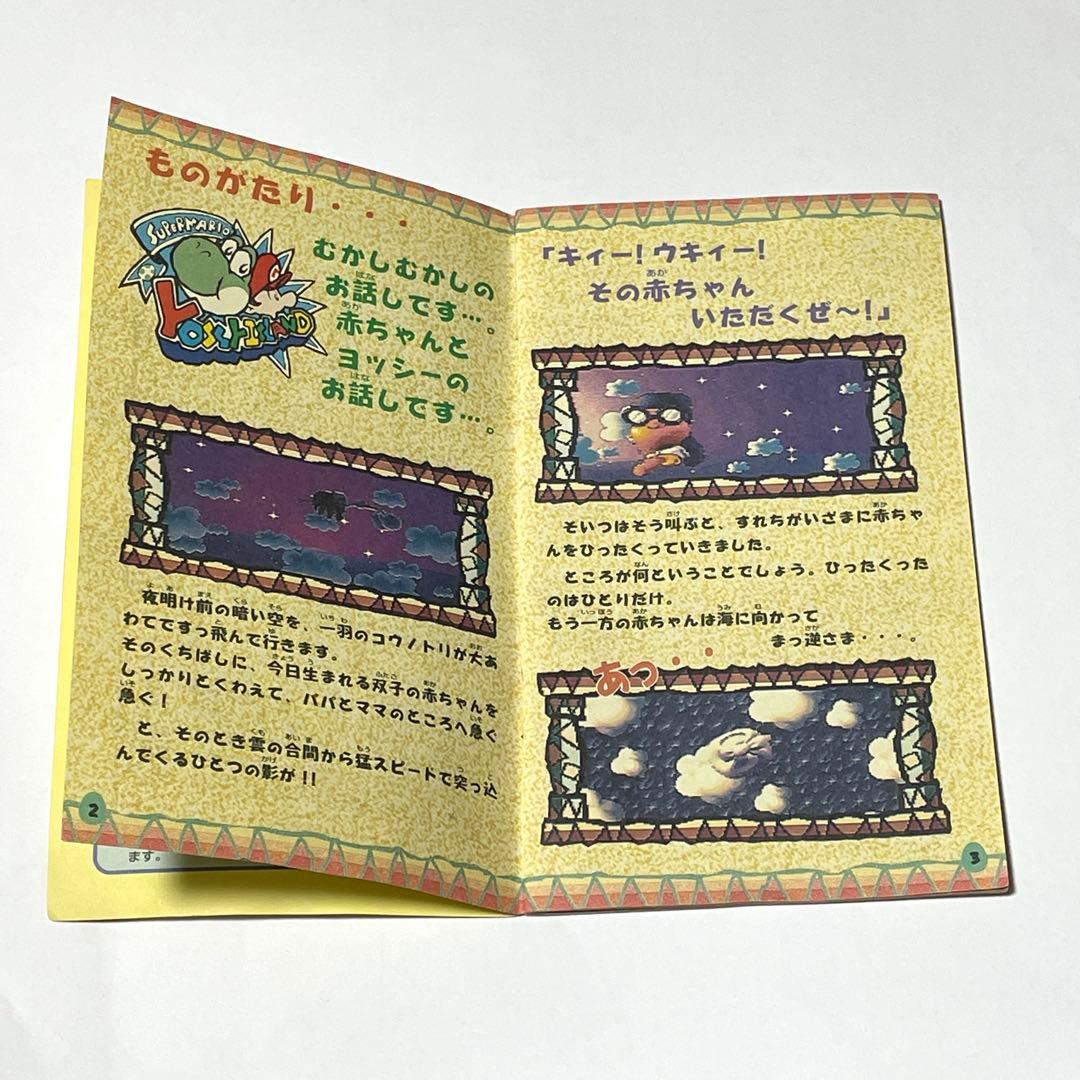 ものがたり・・・
SUPER MARIO
YOSHI ISLAND
むかしむかしの
お話しです…。
赤ちゃんと
ヨッシーの
お話しです…。
夜明け前の暗い空を、一羽のコウノトリが大あ
わてですっ飛んで行きます。
そのくちばしに、今日生まれる双子の赤ちゃんを
しっかりとくわえて、パパとママのところへ急ぐ
急ぐ！
と、そのとき雲の合間から猛スピードで突っ込
んでくるひとつの影が！！
2
ます。
「キィー！ウキィー！
その赤ちゃん
いただくぜ～！」
そいつはそう叫ぶと、すれちがいざまに赤ちゃ
んをひったくっていきました。
ところが何ということでしょう。ひったくった
のはひとりだけ。
もう一方の赤ちゃんは海に向かって
まっ逆さま・・・。
あっ・・
3